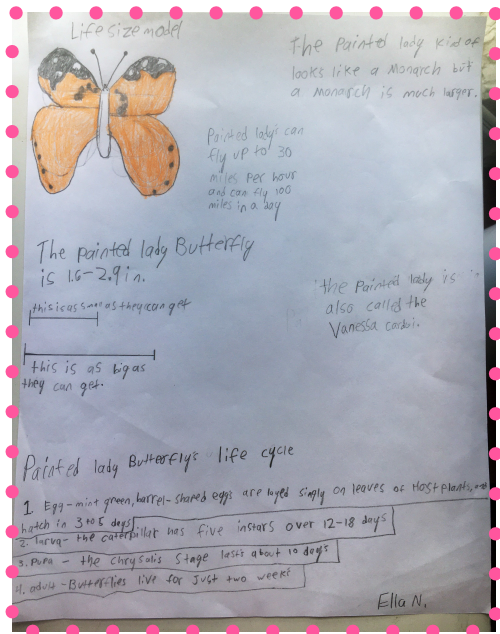 Life size model
The Painted lady kind of
looks like a Monarch but
a Monarch is much larger.
Painted lady's can
fly up to 30
miles per hour
and can fly 100
miles in a day
The painted lady Butterfly
is 1.6-2.9 in.
this is as small as they can get
this is as big as
they can get.
the Painted lady is
also called the
Vanessa cardui.
Painted lady Butterfly's life cycle
1 Egg-mint green, barrel-shaped eggs are layed singly on leaves of Host plants,
hatch in 3 to 5 days
2. larva- the caterpillar has five instars over 12-18 days
3. Pupa - the chrysalis stage lasts about 10 days
4. adult-Butterflies live for Just two weeks
Ella N.